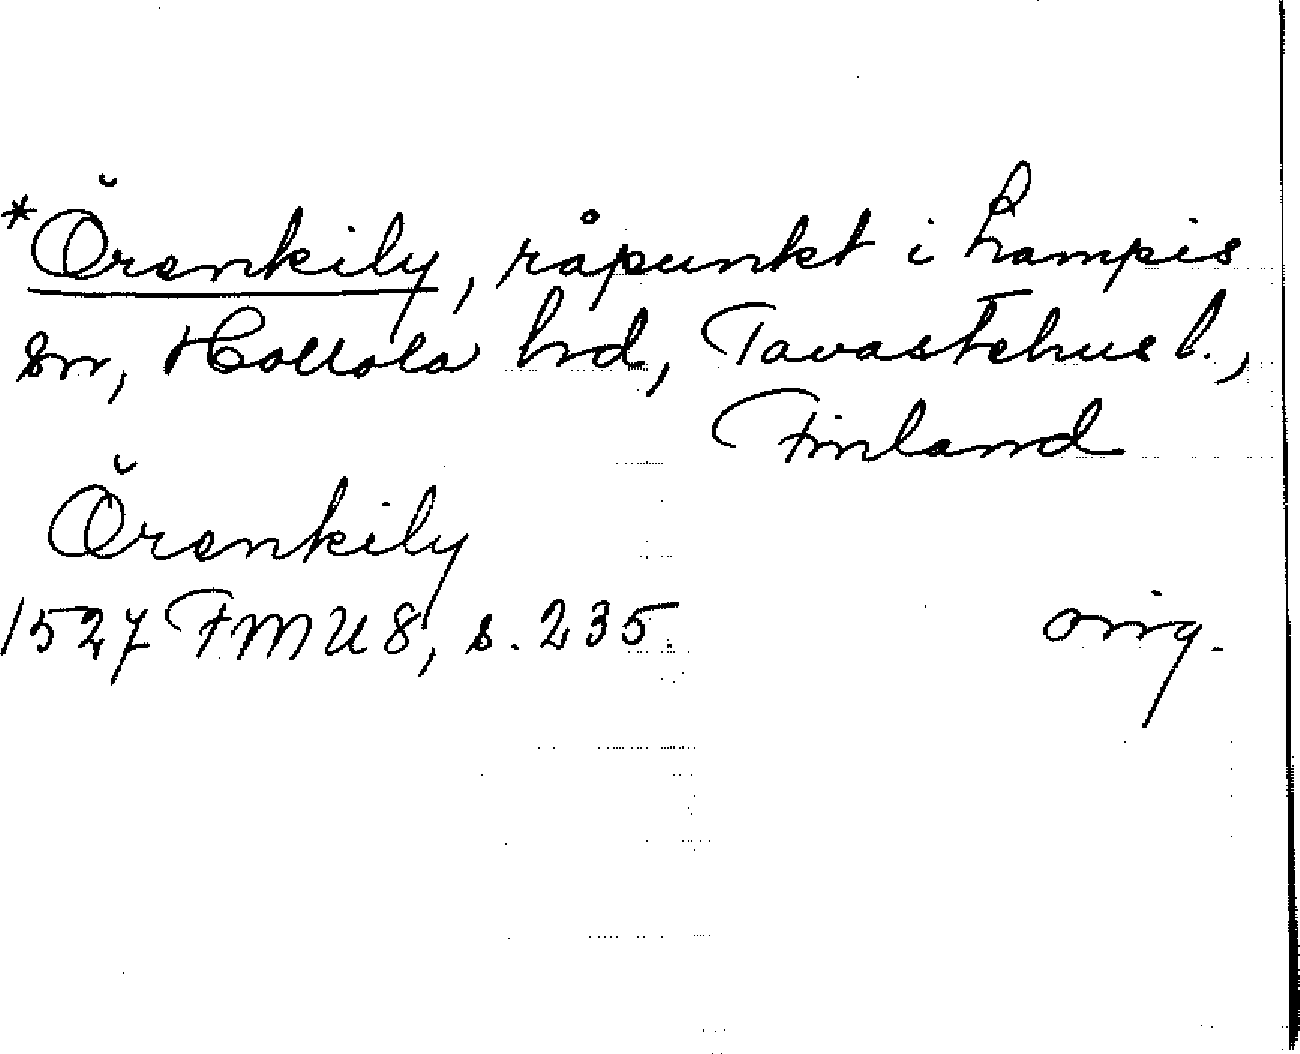 *Örenkily, råpunkt i Lampis
sn, Hollola hd, Tavastehus l.,
Finland
Örenkily
1527 FMU 8, s. 235.
orig.